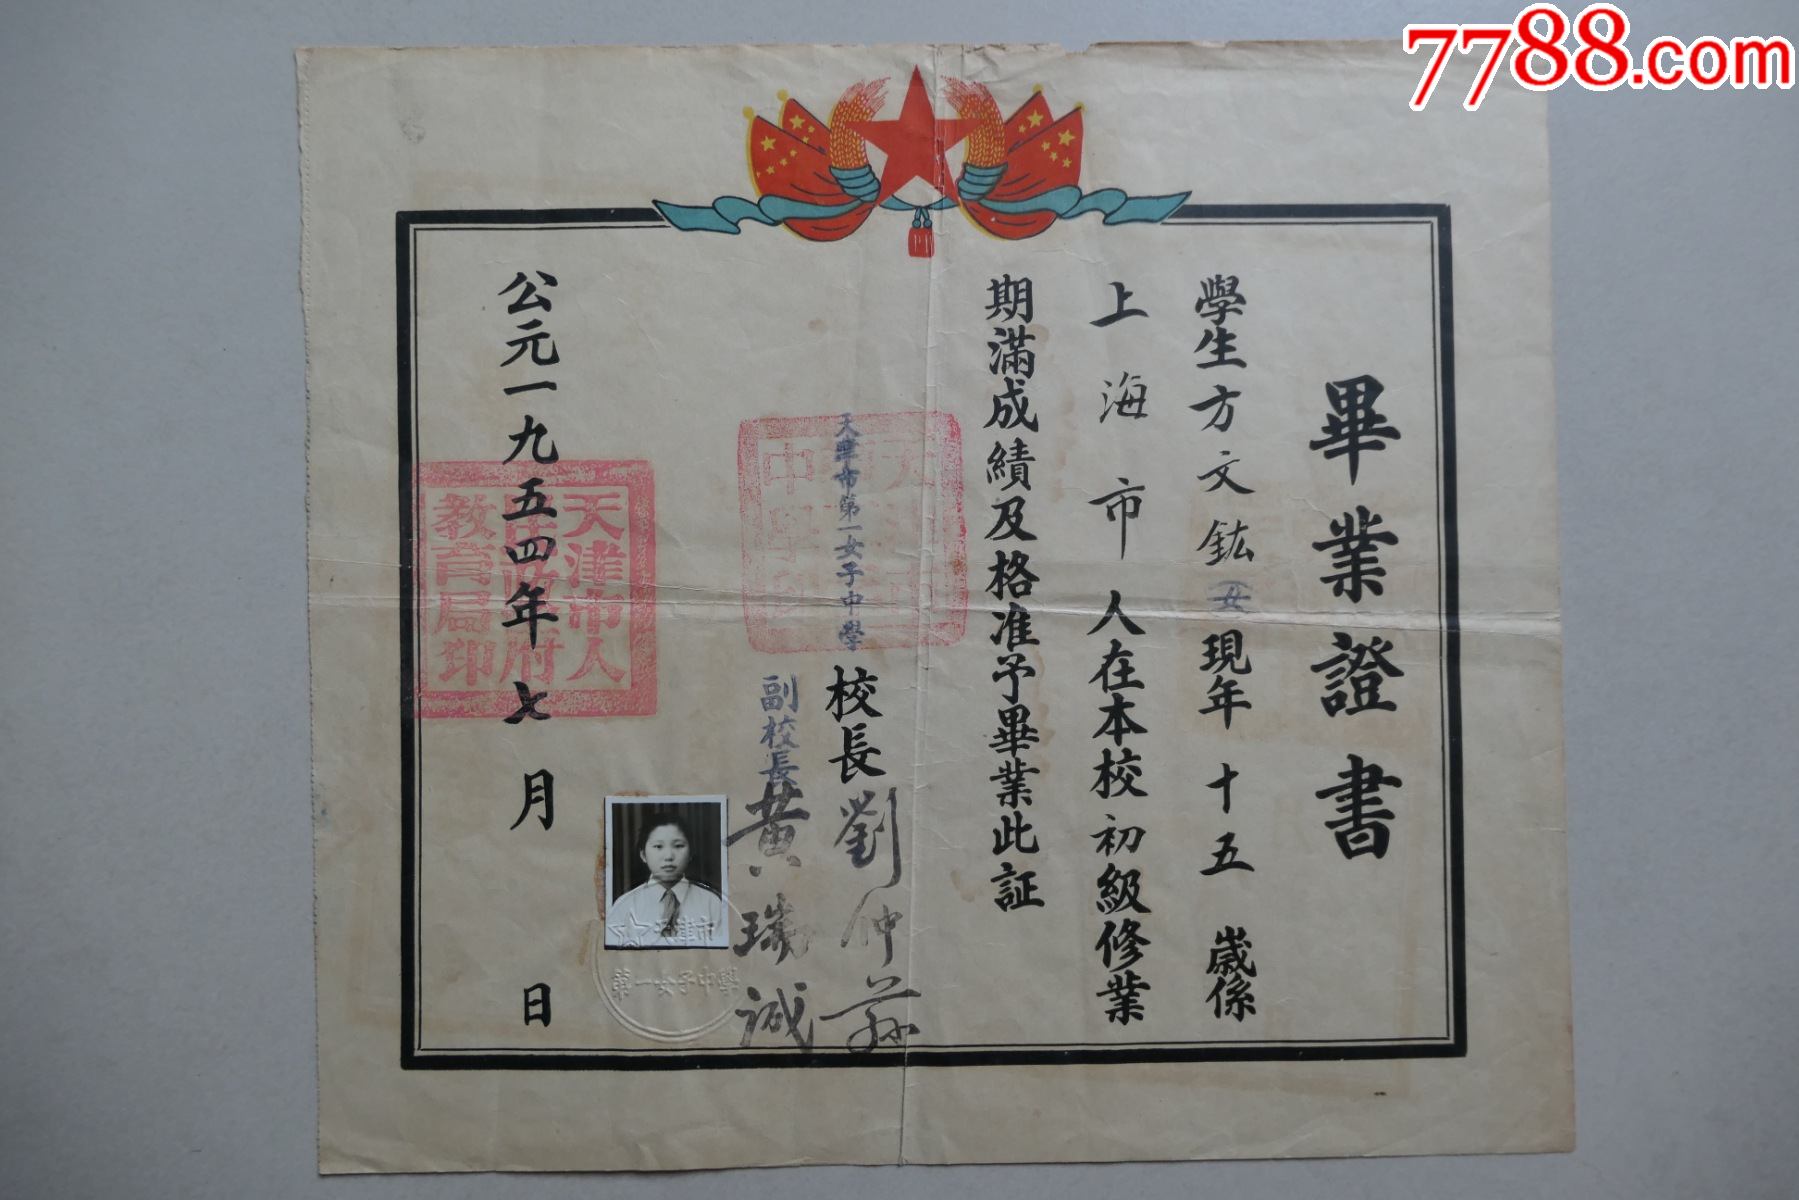 7788.com
畢業證書
學生方文鈜(女)現年十五歲係
上海市人在本校初級修業
期滿成績及格准予畢業此証
天津市第一女子中學
校長劉仲蓀
副校長黃瑞誠
公元一九五四年七月 日
天津市人
民政府
教育局印
天津市
第一女子中學